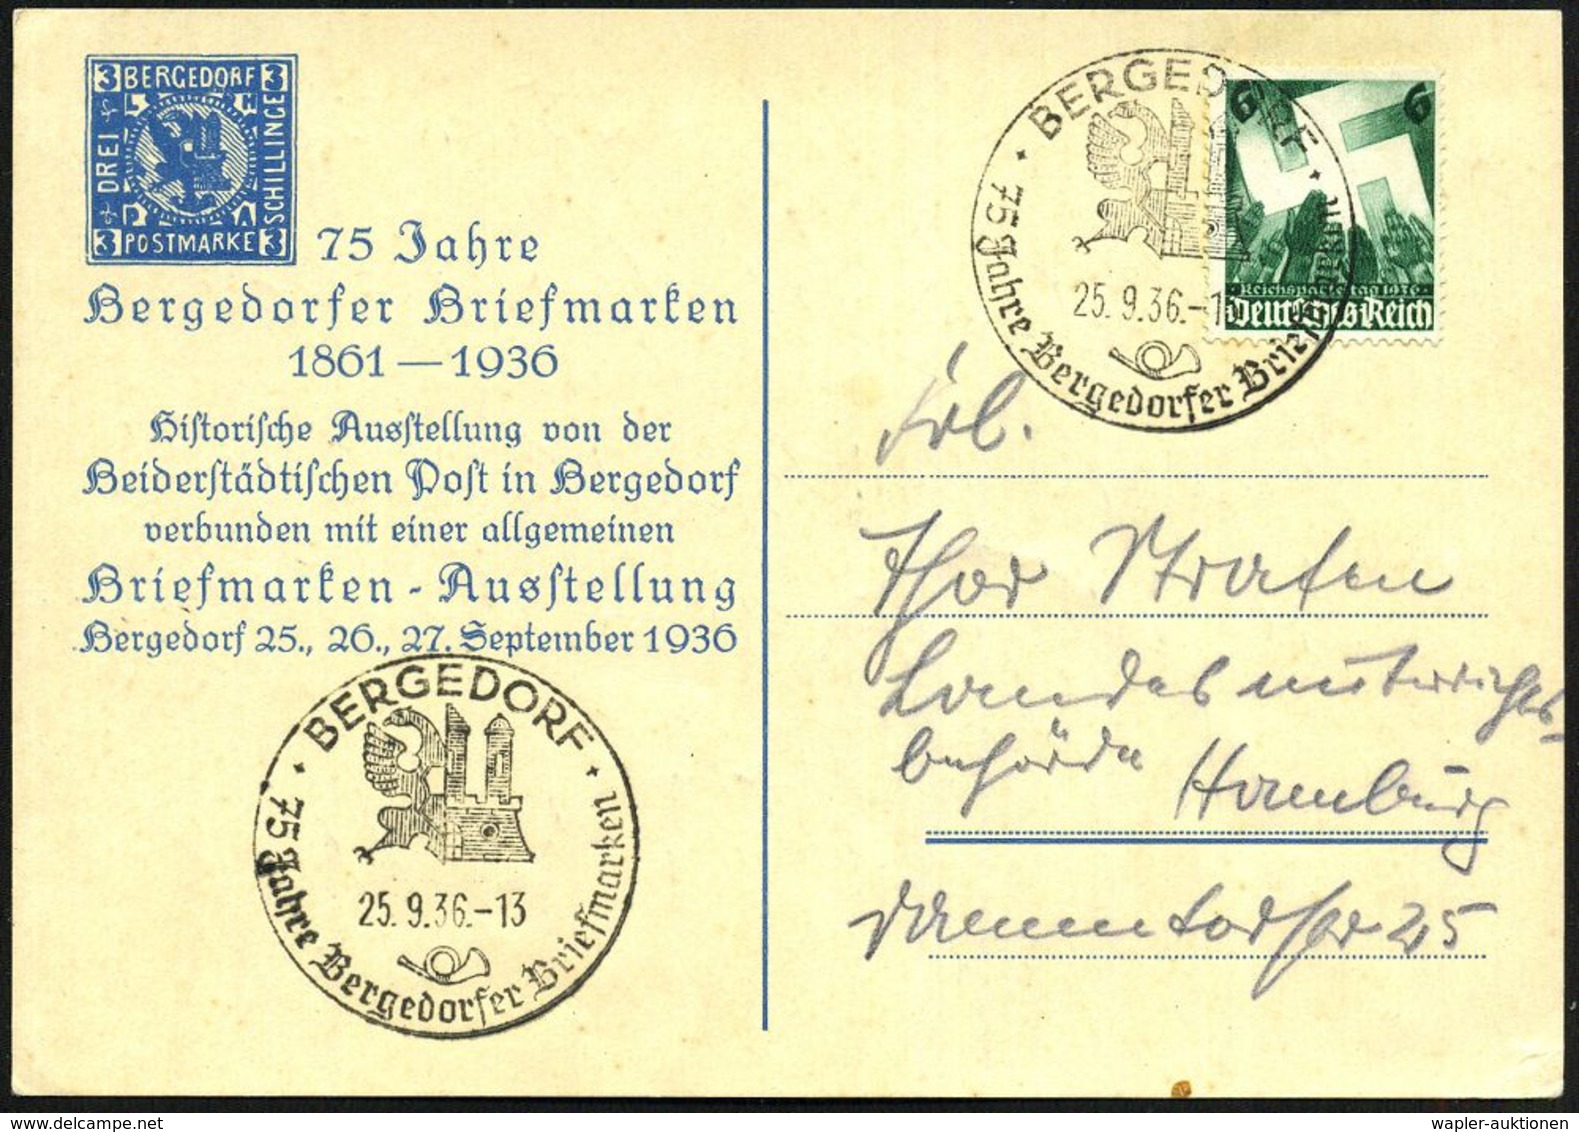 3 BERGEDORF 3
L H
DREI
SCHILLINGE
P A
3 POSTMARKE 3
75 Jahre
Bergedorfer Briefmarken
1861 — 1936
Historische Ausstellung von der
Beiderstädtischen Post in Bergedorf
verbunden mit einer allgemeinen
Briefmarken - Ausstellung
Bergedorf 25., 26., 27. September 1936
BERGEDORF
25. 9. 36.-13
75 Jahre Bergedorfer Briefmarken
BERGEDORF
25. 9. 36.-13
75 Jahre Bergedorfer Briefmarken
6 6
Reichsparteitag 1936
Deutsches Reich
Frl.
Landesunterrichts-
behörde Hamburg
Dammtorstr 25
wapler-auktionen